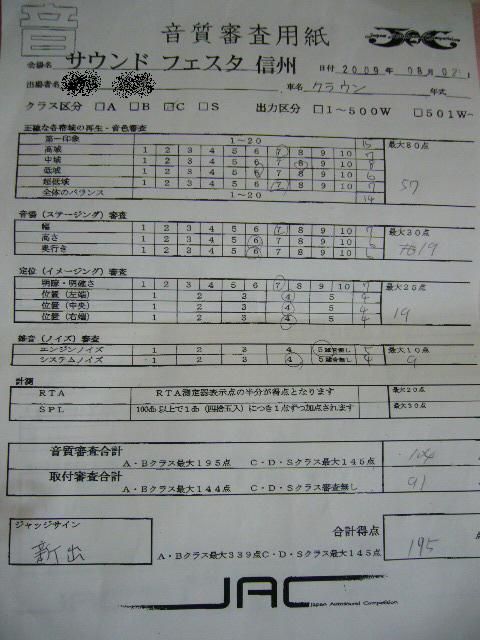 音
音質審査用紙
会場名 サウンド フェスタ 信州 日付 2009年 08月 02
出場者名 車名 クラウン 年式
クラス区分 □A □B □C □S 出力区分 □1～500W □501W～
正確な各帯域の再生・音色審査
第一印象 1～20 15 最大80点
高域 1 2 3 4 5 6 7 8 9 10 7
中域 1 2 3 4 5 6 7 8 9 10 8
低域 1 2 3 4 5 6 7 8 9 10 6 57
超低域 1 2 3 4 5 6 7 8 9 10 7
全体のバランス 1～20 14
音場（ステージング）審査
幅 1 2 3 4 5 6 7 8 9 10 7 最大30点
高さ 1 2 3 4 5 6 7 8 9 10 6 19
奥行き 1 2 3 4 5 6 7 8 9 10 6
定位（イメージング）審査
明瞭・明確さ 1 2 3 4 5 6 7 8 9 10 7 最大25点
位置（左端） 1 2 3 4 5 4
位置（中央） 1 2 3 4 5 4 19
位置（右端） 1 2 3 4 5 4
雑音（ノイズ）審査
エンジンノイズ 1 2 3 4 5雑音無し 5 最大10点
システムノイズ 1 2 3 4 5雑音無し 4 9
計測
RTA RTA測定器表示点の半分が得点となります 最大20点
SPL 100dB以上で1dB（四捨五入）につき1点ずつ加点されます 最大30点
音質審査合計 104
A・Bクラス最大195点 C・D・Sクラス最大145点
取付審査合計 91
A・Bクラス最大144点 C・D・Sクラス審査無し
ジャッジサイン 合計得点
新出 195 点
A・Bクラス最大339点 C・D・Sクラス最大145点
JAC
Japan Autosound Competition